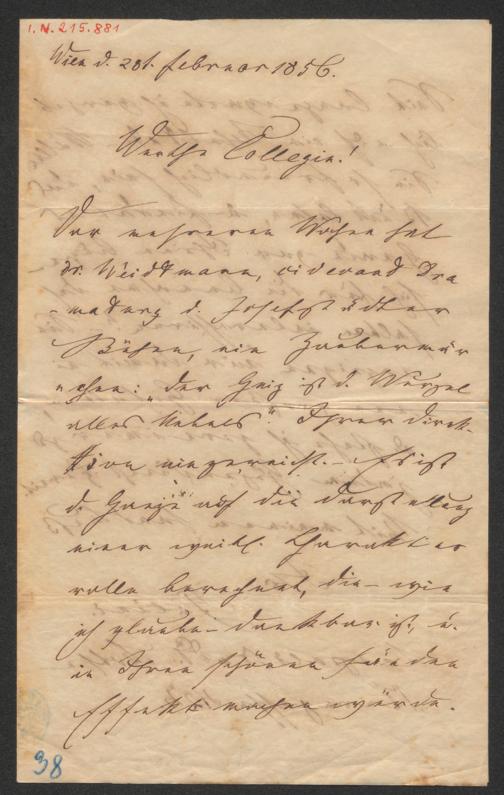 I.N. 215.881
Wien d. 28t. Februar 1856.
Werthe Collegin!
Vor mehreren Wochen hat
dr. Weidtmann, cidevand Dra
-maturg d. Josefstädter
Bühne, ein Zaubermär
-chen: "der Geiz ist d. Wurzel
alles Uebels." Ihrer Direk-
tion eingereicht. – Es ist
d. Ganze auf die Darstellung
einer weibl. Charakter
rolle berechnet, die – wie
ich glaube – dankbar ist, u.
in Ihren schönen Händen
Effekt machen würde.
38